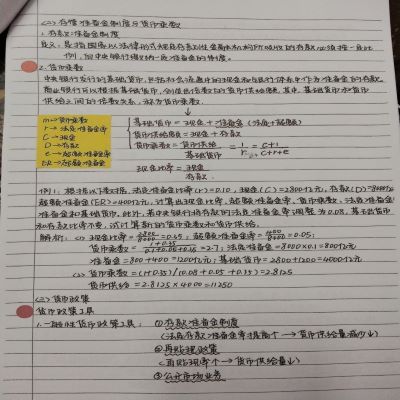 (二) 存款准备金制度与货币乘数
1. 存款准备金制度
定义：是指国家以法律形式规定存款性金融机构将所吸收的存款必须按一定比
例，向中央银行缴纳一定准备金的制度。
2. 货币乘数
中央银行发行的基础货币，包括社会流通中的现金和银行体系中作为准备金的存款，
商业银行可以根据基础货币，创造出倍数的货币供给额。其中，基础货币和货币
供给之间的倍数关系，称为货币乘数。
m→货币乘数
r→法定准备金率
C→现金
D→存款
e→超额准备金率
ER→超额准备金
基础货币=现金+准备金（法定+超额）
货币供给额=现金+存款
货币乘数=货币供给/基础货币=1/K=C+1/C+r+e
现金比率=现金/存款
例1：根据以下数据，法定准备金率(r)=0.10，现金(C)=2800亿元，存款(D)=8000亿元
超额准备金(ER)=400亿元，计算出现金比率，超额准备金率，货币乘数，法定准备金
准备金和基础货币。此外，若中央银行将存款的法定准备金率调整为0.08，基础货币
和存款比率不变，试计算新的货币乘数和货币供给。
解析：(1) 现金比率=2800/8000=0.35；超额准备金率=400/8000=0.05；
货币乘数=1+0.35/0.1+0.05+0.35=2.7；法定准备金=8000×0.1=800亿元
准备金=800+400=1200亿元；基础货币=2800+1200=4000亿元
(2) 货币乘数=(1+0.35)/(0.08+0.05+0.35)=2.8125
货币供给=2.8125×4000=11250
(三) 货币政策
货币政策工具
1. 一般性货币政策工具：①存款准备金制度
（法定存款准备金率提高↑→货币供给量减少↓）
②再贴现政策
（再贴现率↑→货币供给量↓）
③公开市场业务